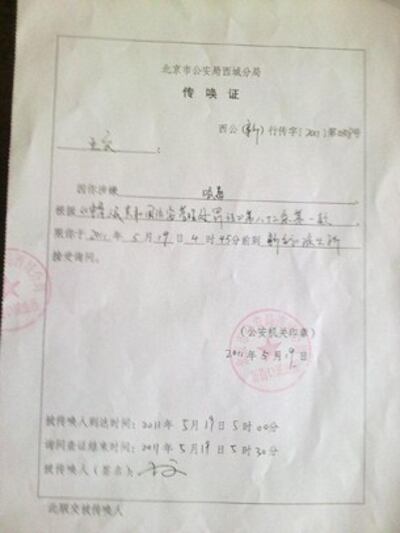 北京市公安局西城分局
传唤证
西公(新)行传字[2011]第 号
因你涉嫌
根据《中华人民共和国治安管理处罚法》第八十二条第一款
限你于2011年5月19日4时45分前到新 派出所
接受询问。
(公安机关印章)
2011年5月19日
被传唤人到达时间:2011年5月19日5时00分
询问查证结束时间:2011年5月19日5时30分
被传唤人(签名):
此联交被传唤人